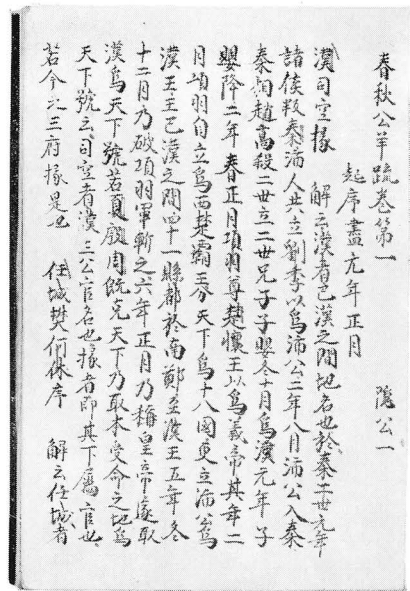 春秋公羊疏卷第一
起序盡元年正月　隱公一
漢司空掾　解云漢者巴漢之間地名也於秦二世元年
諸侯叛秦沛人共立劉季以爲沛公二年八月沛公入秦
秦相趙高殺二世立二世兄子子嬰冬十月爲漢元年子
嬰降二年春正月項羽尊楚懷王以爲義帝其年二
月項羽自立爲西楚霸王分天下爲十八國更立沛公爲
漢王王巴漢之間四十一縣都於南鄭至漢王五年冬
十二月乃破項羽軍斬之六年正月乃稱皇帝遂取
漢爲天下號若夏殷周既克天下乃取本受命之地爲
天下號云司空者漢三公官名也掾者即其下屬官也
若今之三府掾是也　任城樊何休序　解云任城者